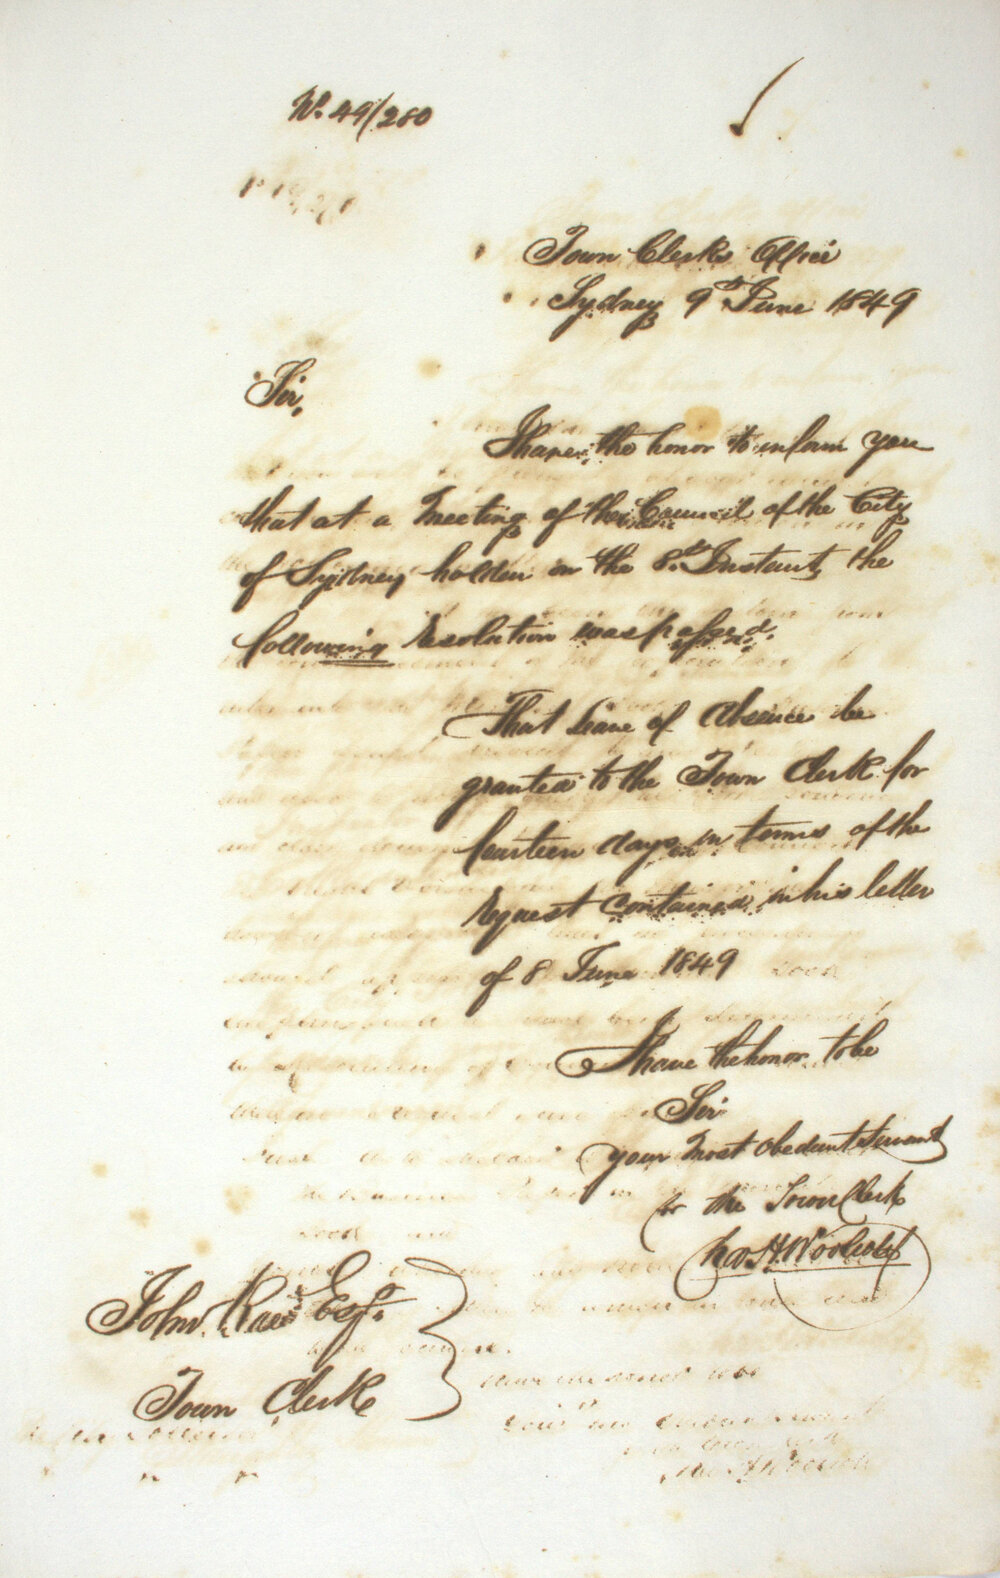 No. 49/280
Town Clerks Office
Sydney 9th June 1849
Sir,
I have the honor to inform you
that at a Meeting of the Council of the City
of Sydney holden on the 8th Instant, the
following Resolution was passed.
That Leave of Absence be
granted to the Town Clerk for
fourteen days in terms of the
request contained in his letter
of 8 June 1849
I have the honor to be
Sir
your most obedient Servant
for the Town Clerk
Chas H. Woolcott
John Rae Esq.
Town Clerk